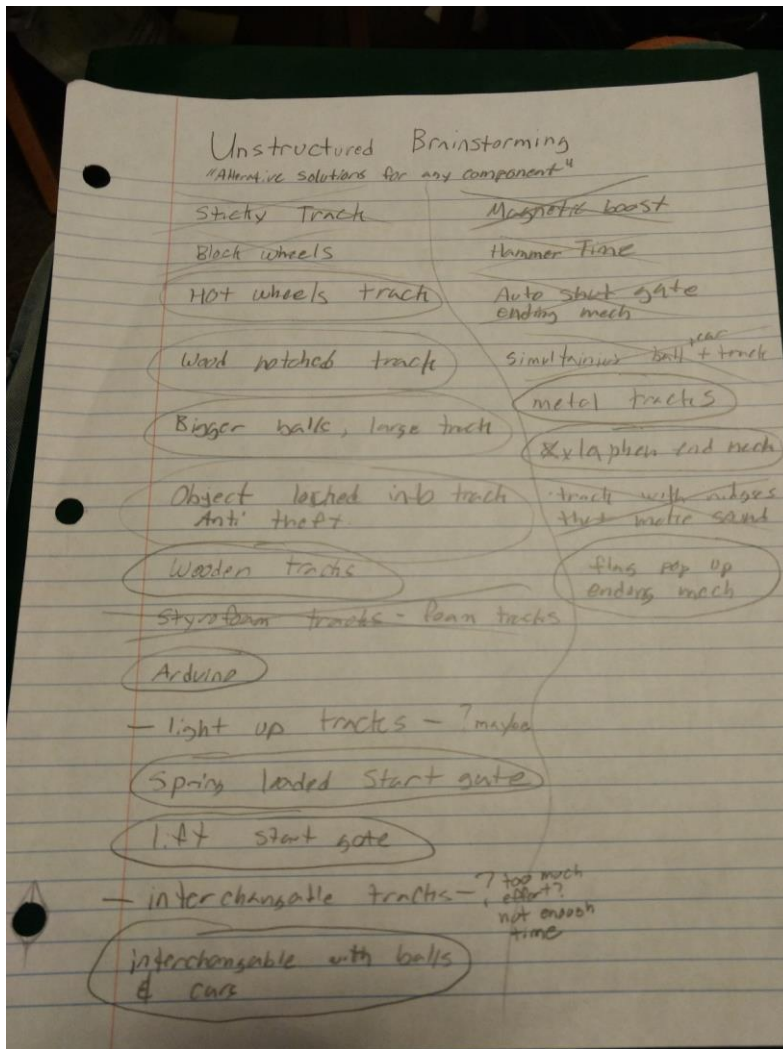 Unstructured Brainstorming
"Alterative solutions for any component"
Sticky Track
Block wheels
Hot wheels track
Wood notched track
Bigger balls, large track
Object locked into track
Anti theft
Wooden tracks
Styrofoam tracks - foam tracks
Arduino
- light up tracks - ? maybe
Spring loaded start gate
lift start gate
- interchangable tracks - ? too much
effort?
not enough
time
interchangable with balls
& cars
Magnetic boost
Hammer Time
Auto shut gate
ending mech
ball + car + track
metal tracks
end mech
track with ridges
that make sound
flag pop up
ending mech